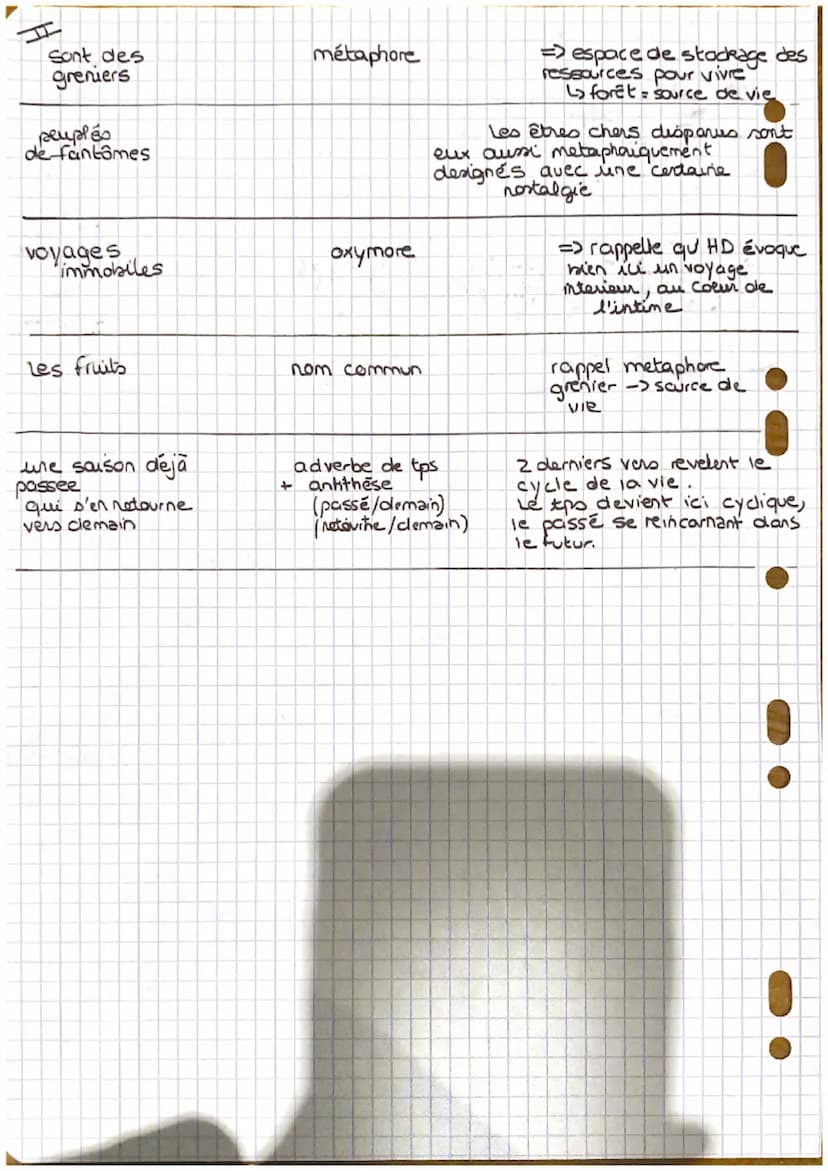 II
sont des
greniers
métaphore
=> espace de stockage des
ressources pour vivre
↳ forêt = source de vie
peuplés
de fantômes
Les êtres chers disparus sont
eux aussi metaphoriquement
designés avec une certaine
nostalgie
voyages
immobiles
oxymore
=> rappelle qu'HD évoque
bien ici un voyage
interieur, au coeur de
l'intime
Les fruits
nom commun
rappel metaphore
grenier -> source de
vie
une saison déjà
passee
qui s'en retourne
vers demain
adverbe de tps
+ antithèse
(passé/demain)
/demain)
2 derniers vers revelent le
cycle de la vie.
Le tps devient ici cyclique,
le passé se reincarnant dans
le futur.